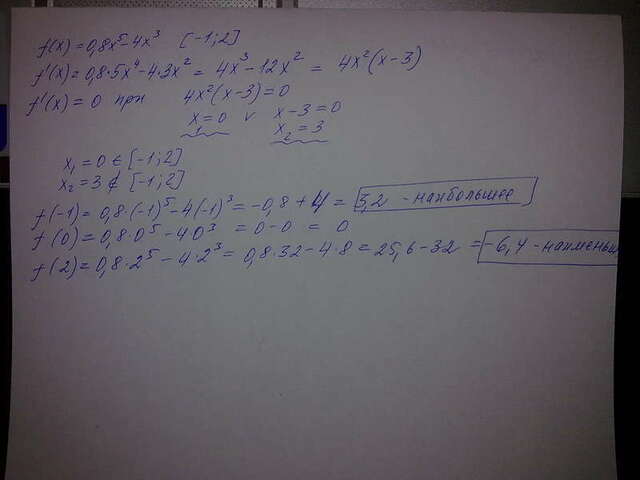 f(x) = 0,8x⁵ - 4x³ [-1; 2]
f'(x) = 0,8·5x⁴ - 4·3x² = 4x³ - 12x² = 4x²(x-3)
f'(x) = 0 при 4x²(x-3) = 0
x = 0 v x - 3 = 0
x₂ = 3
x₁ = 0 ∈ [-1; 2]
x₂ = 3 ∉ [-1; 2]
f(-1) = 0,8·(-1)⁵ - 4(-1)³ = -0,8 + 4 = 3,2 - наибольшее
f(0) = 0,8·0⁵ - 4·0³ = 0 - 0 = 0
f(2) = 0,8·2⁵ - 4·2³ = 0,8·32 - 4·8 = 25,6 - 32 = -6,4 - наименьш